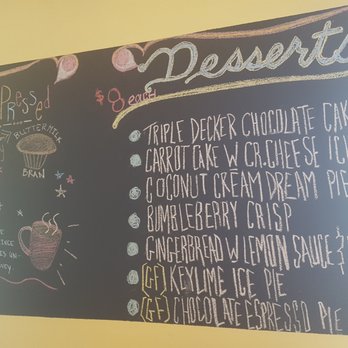 Pressed
BUTTERMILK
BRAN
Desserts
$8 each
TRIPLE DECKER CHOCOLATE CAK
CARROT CAKE W CR.CHEESE IC
COCONUT CREAM DREAM PIE
BUMBLEBERRY CRISP
GINGERBREAD W LEMON SAUCE
(GF) KEYLIME ICE PIE
(GF) CHOCOLATE ESPRESSO PIE